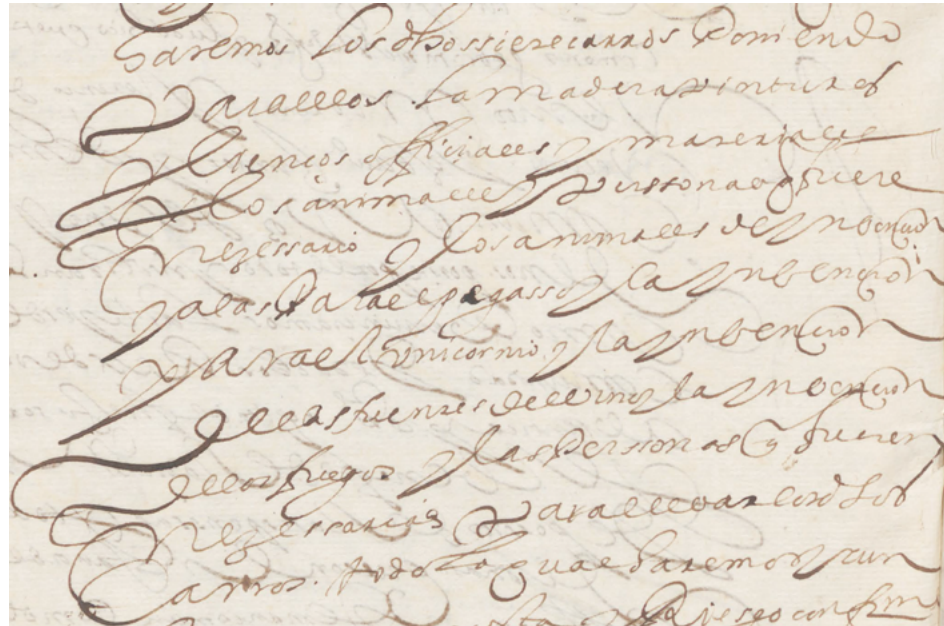 haremos los dhos siete carros Poniendo
Para ellos la madera Pinturas
y liencos officiales y materiales
y los animales y Perssonas q fuere
nezessario y los animales de ynbencion
y alas Para el pegasso y la ynbencion
Para el unicornio y la ynbencion
de las fuentes de vino y la ynbencion
de los fuegos y las Perssonas q fueren
nezessarias Para llevar los dhos
Carros todo lo qual haremos y cun